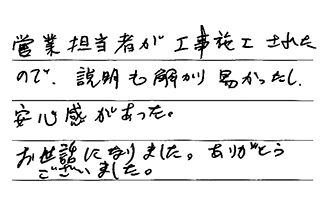 営業担当者が工事施工された
ので、説明も解かり易かったし、
安心感があった。
お世話になりました。ありがとう
ございました。